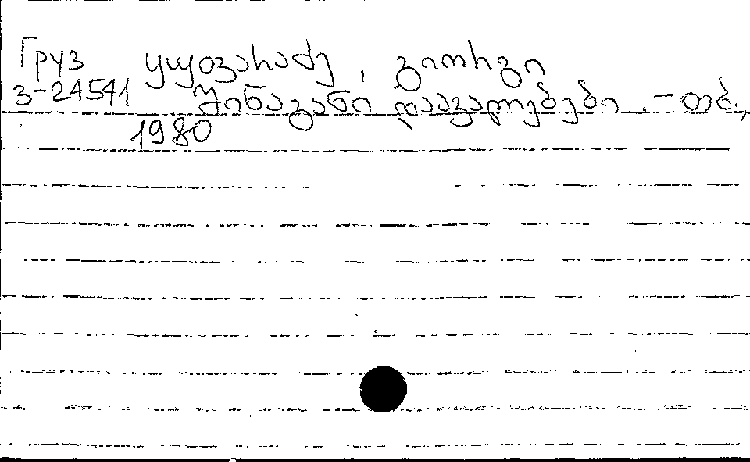 Груз , გიორგი
3-24541 შინაგანი დაავადებები. - თბ.,
1980